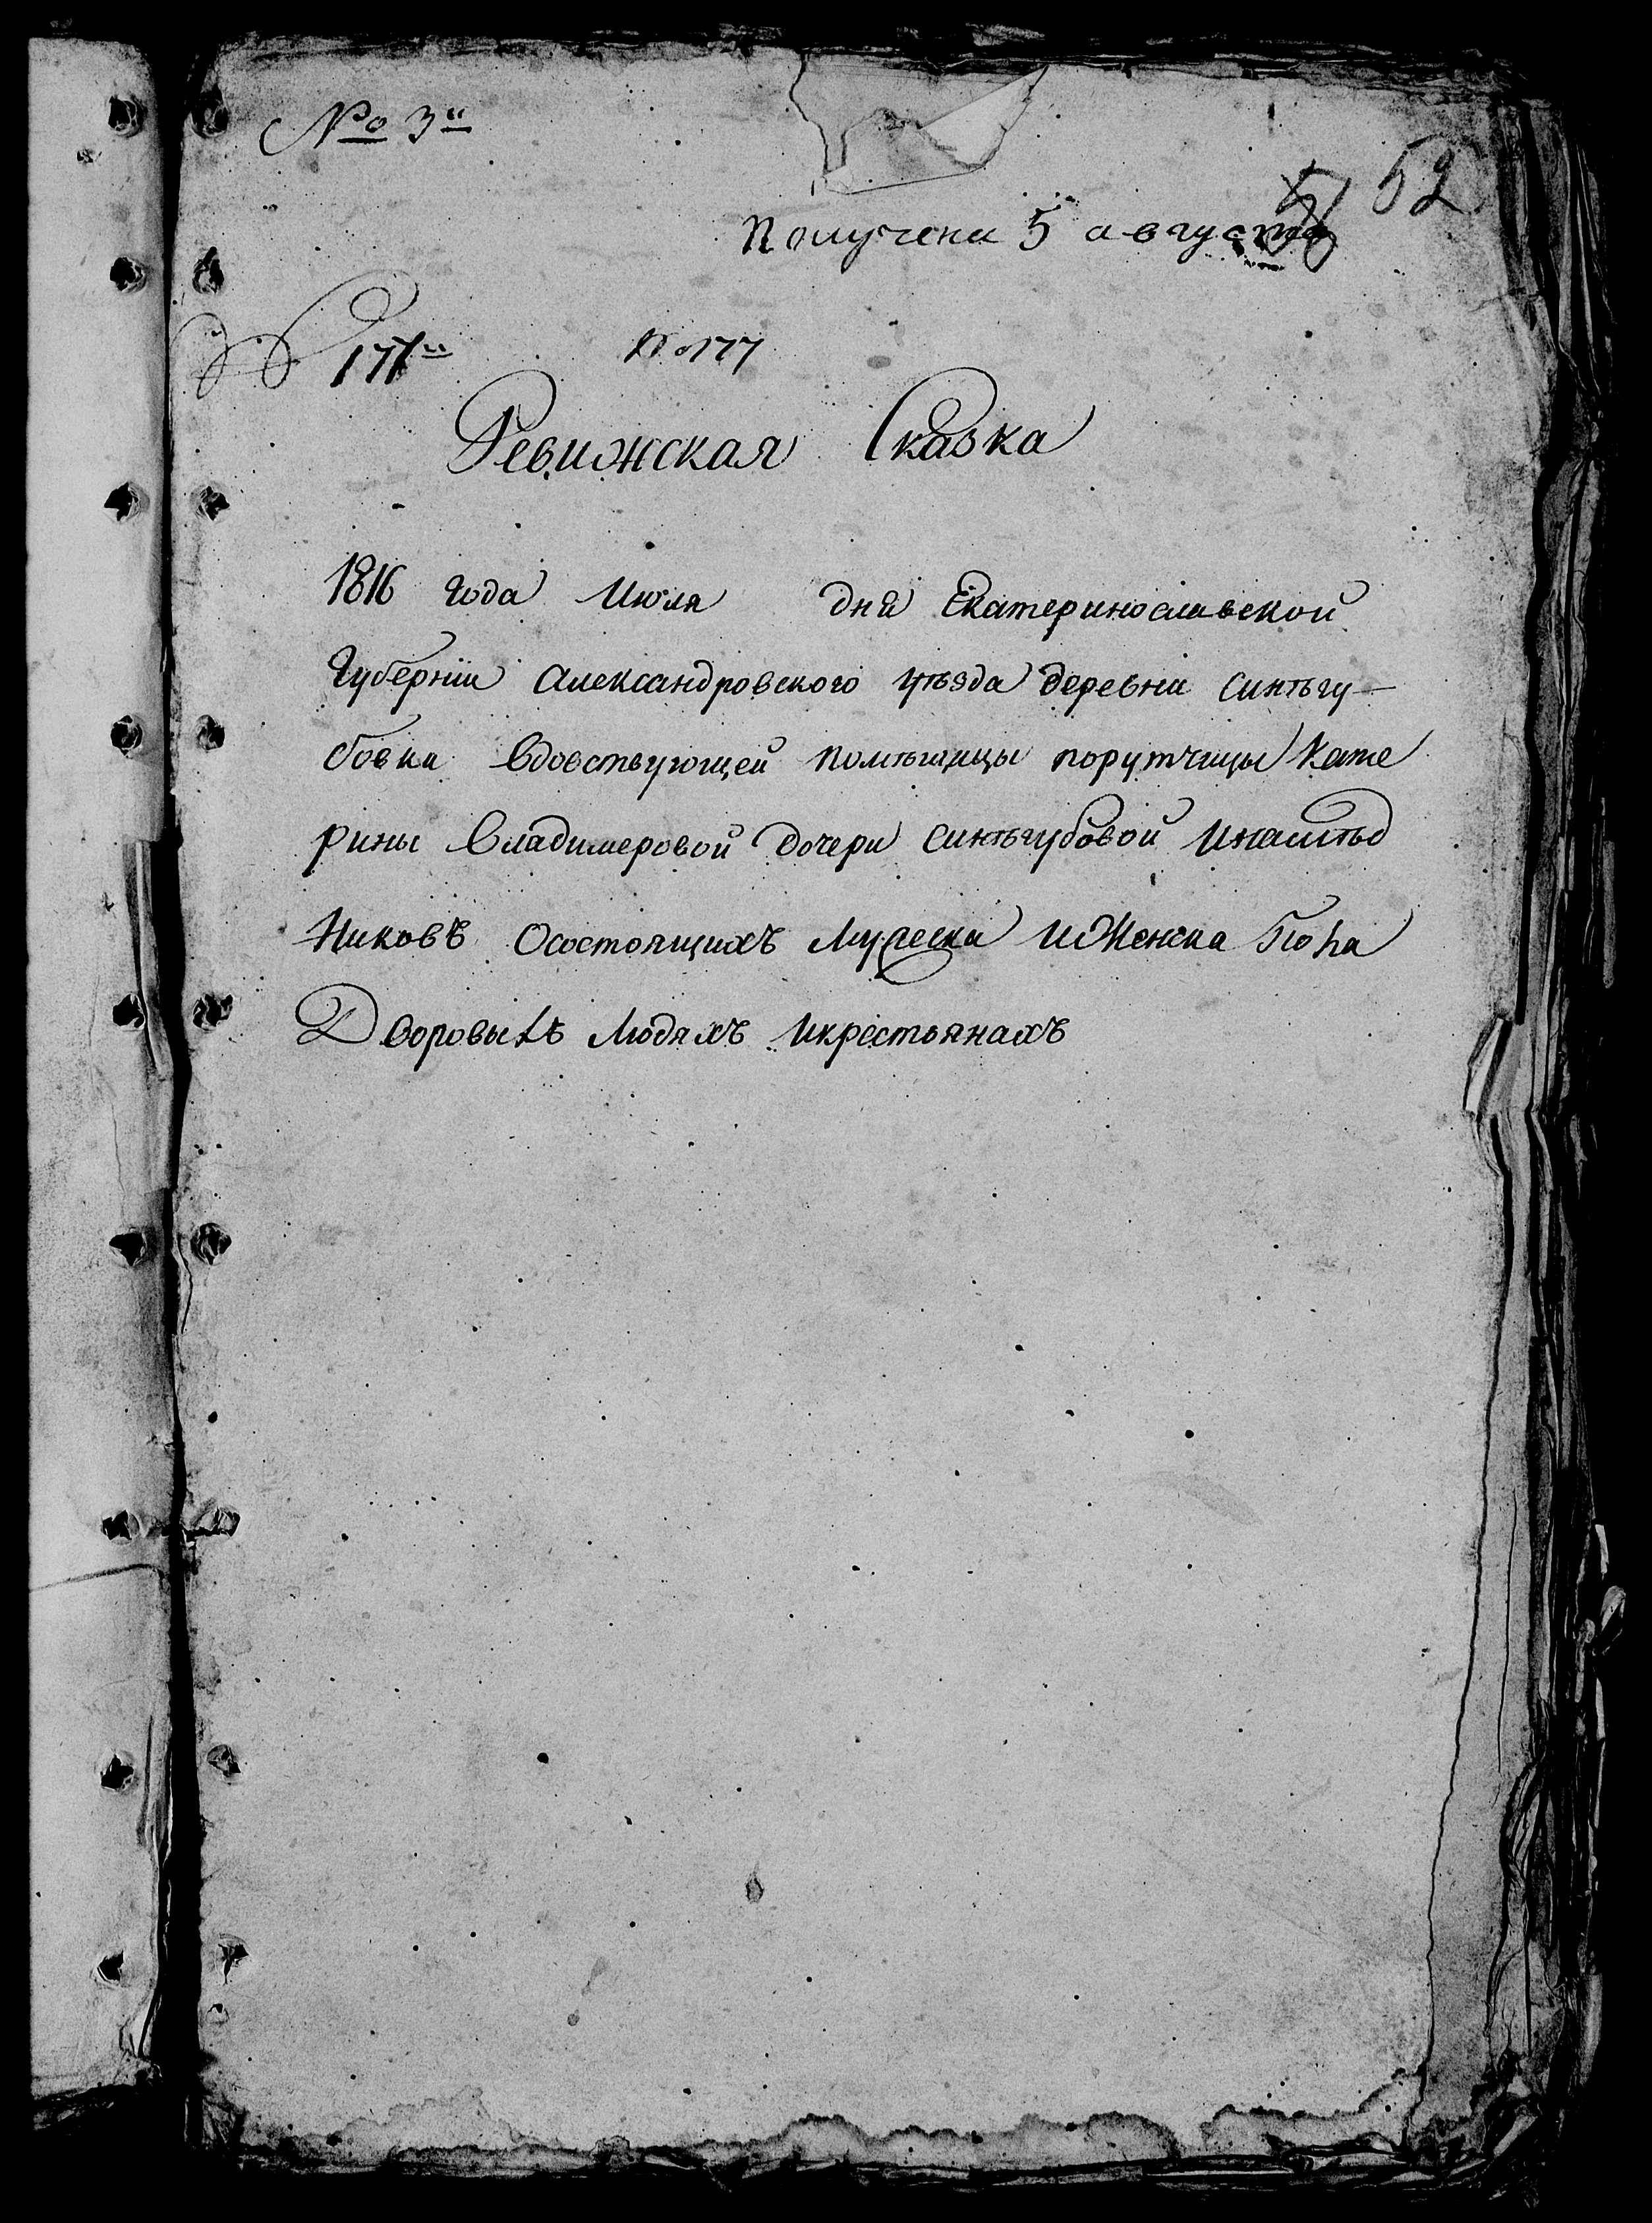 № 3й
52
Получена 5 августа
177й
№ 177
Ревижская Сказка
1816 года Июля дня Екатеринославской
Губернии Александровского уѣзда деревни Синѣгу-
бовки вдовствующей помѣщицы порутчицы Кате
рины Владимеровой дочери Синѣгубовой инаслѣд
никовъ Осостоящихъ Мужеска иЖенска Пола
Дворовыхъ Людяхъ икрестьянахъ